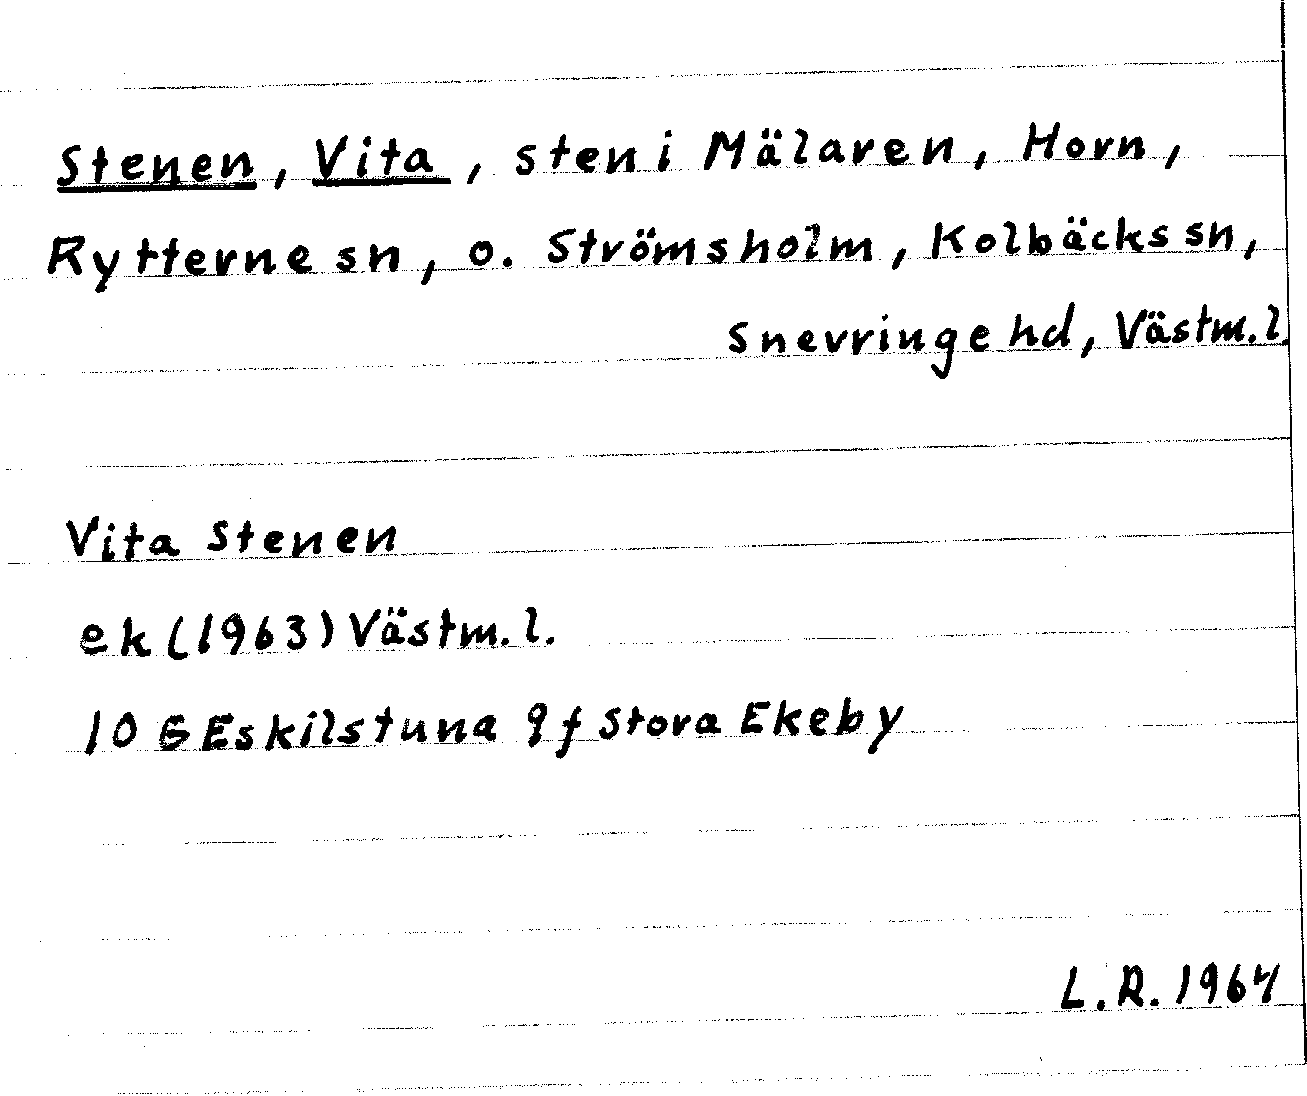 Stenen, Vita, sten i Mälaren, Horn,
Rytterne sn, o. Strömsholm, Kolbäcks sn,
Snevringe hd, Västm.l.
Vita Stenen
ek (1963) Västm.l.
10 G Eskilstuna 9 f Stora Ekeby
L.R. 1964